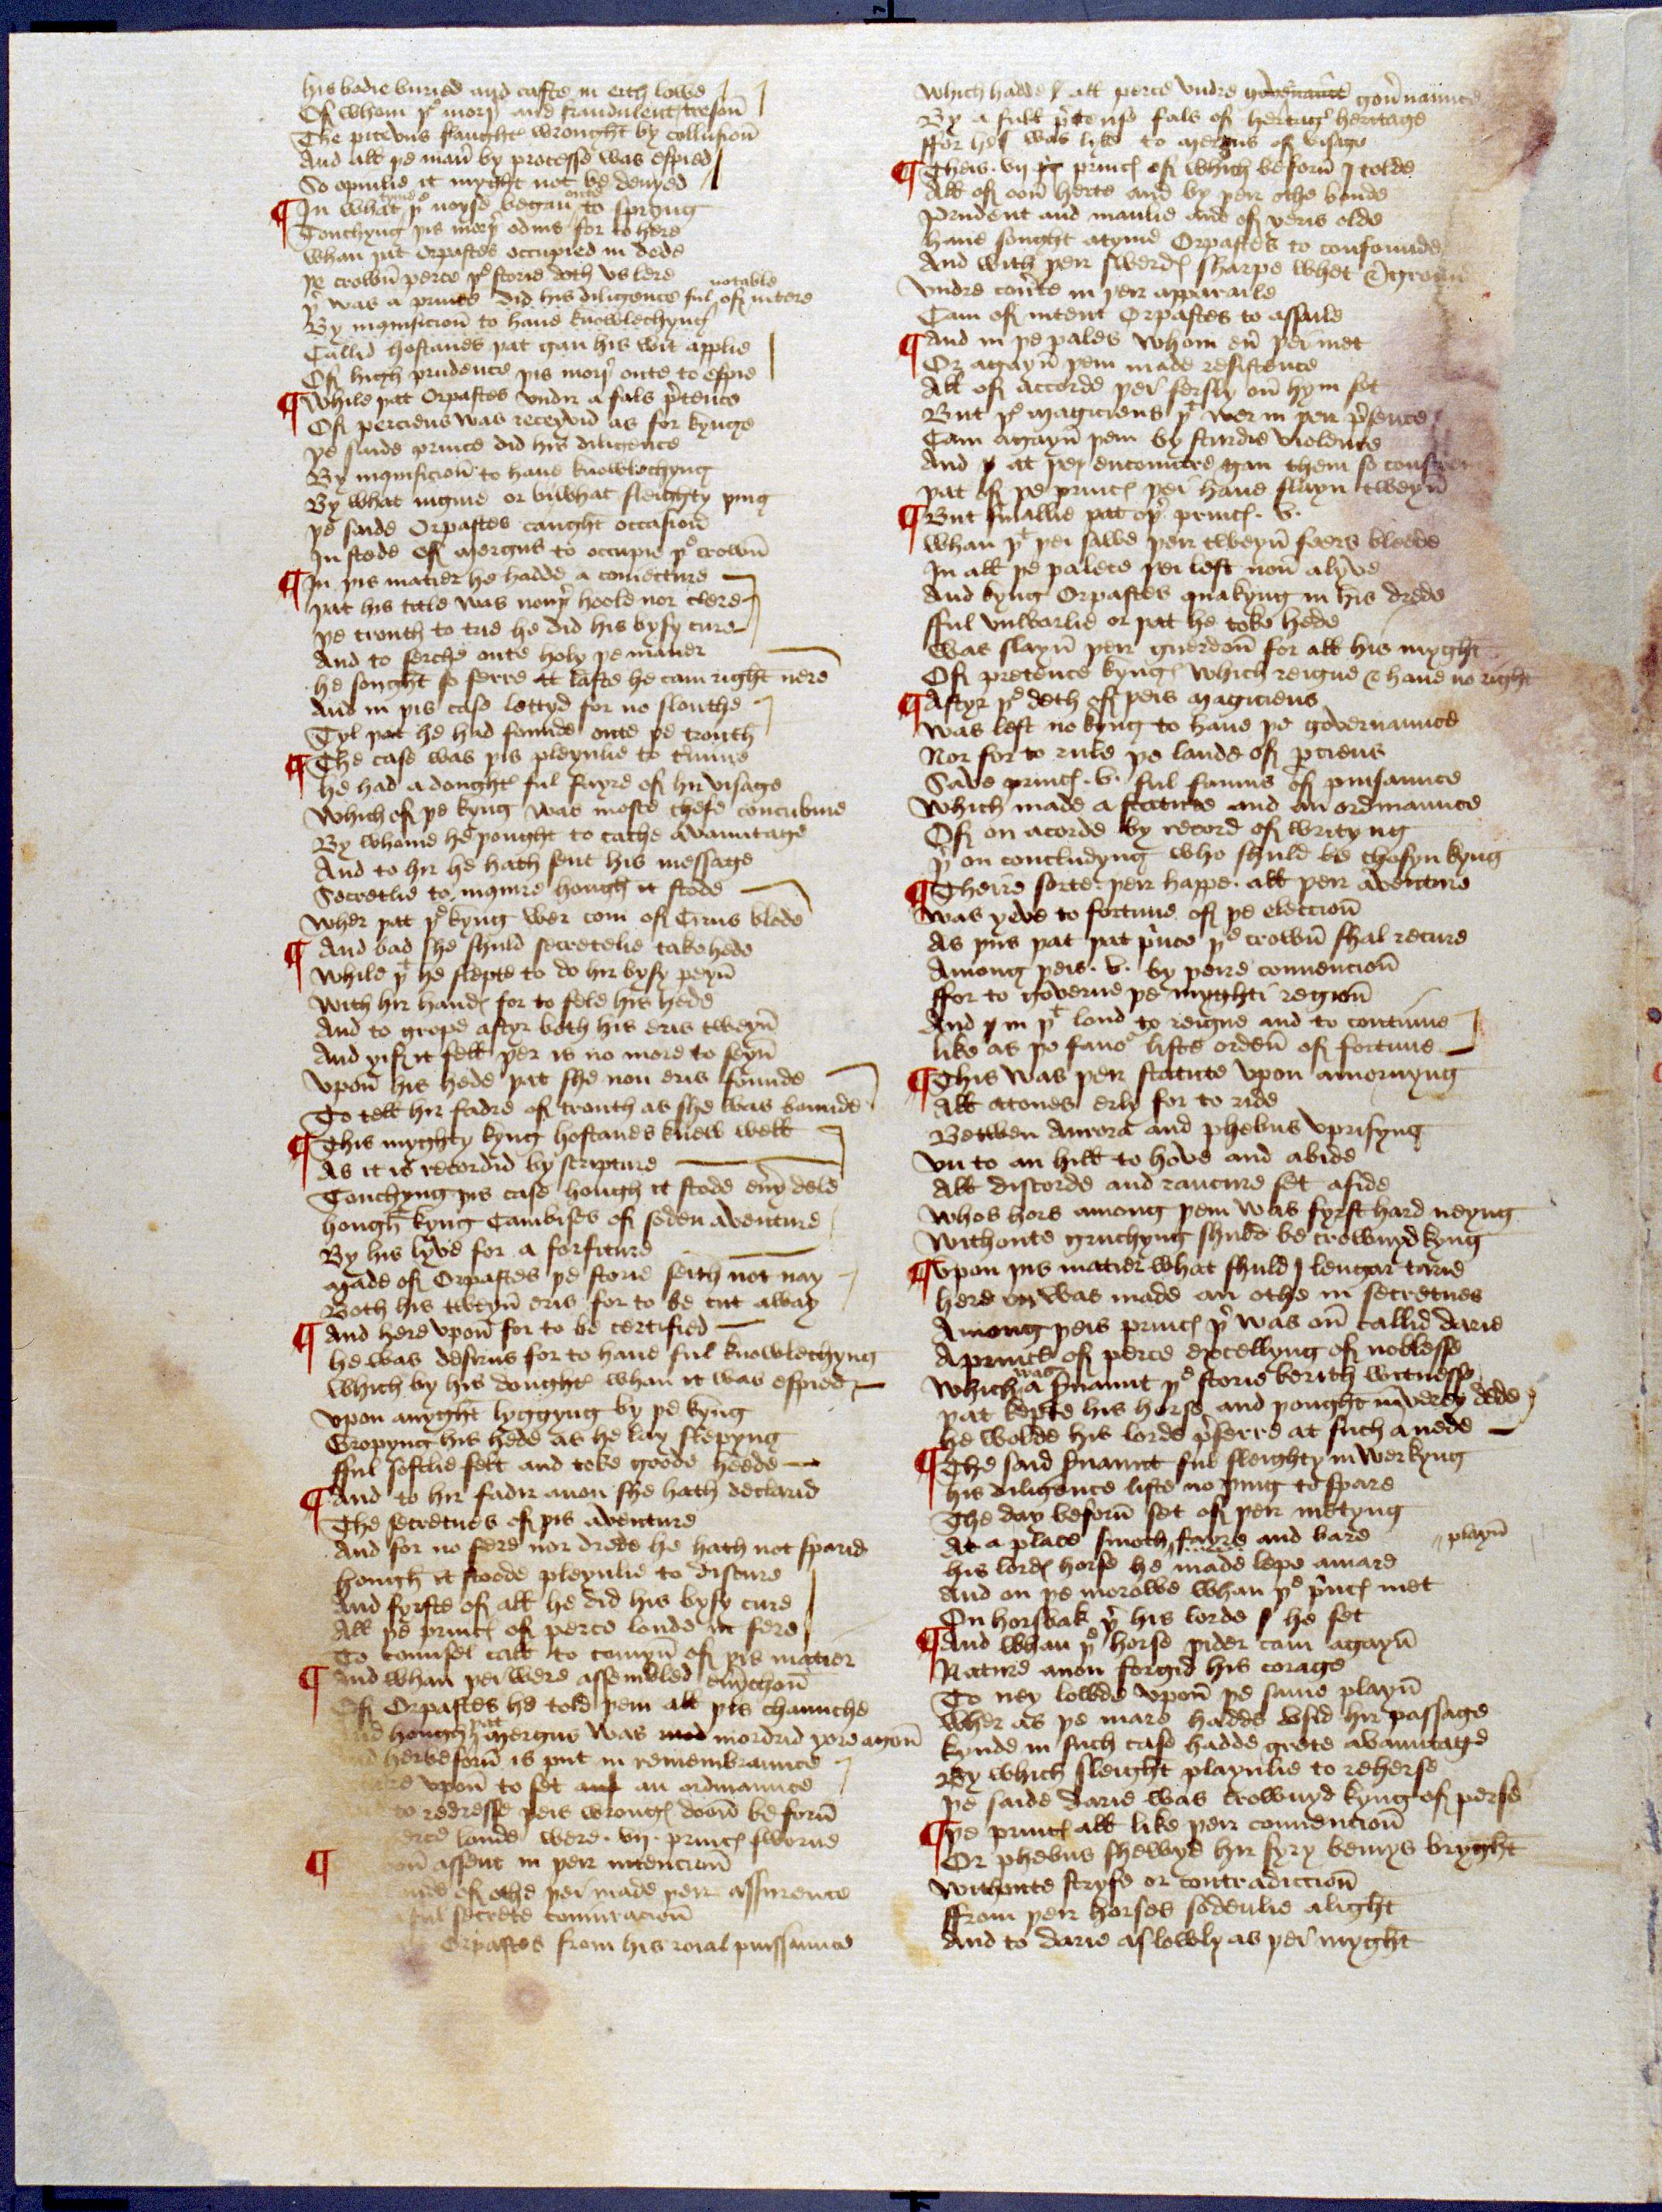 his bodie buried and caste in erth lowe
Of whom þe morþ and fraudulent treson̄
The pitevus slaught wrought by collusion̄
And all þe man̄ by processe was espied
So opinlie it myght not be denyed
¶ In what tyme þe noyse began oute to spryng
Touchyng þis morþ odius for to here
whan þat Orpastes occupied in dede
þe crown̄ perce þe storie doth vs lere
þ was a prince did his diligence ful notable of mtere
By inquisicion̄ to haue knowlechyng
Callid hostanes þat gan his wit applie
Of high prudence þis morþ oute to espie
¶ While þat Orpastes vndir a fals p̄tence
Of perciens was receyvid as for kynge
þe saide prince did his diligence
By inquisicion̄ to haue knowlechyng
By what ingine or bi what sleighty þing
þe saide Orpastes caught occasion̄
In stede of mergus to occupie þe crown̄
¶ In þis matier he hadde a coniecture
þat his title was nouþ hoole nor clere
þe trouth to trie he did his bysy cure
And to serche oute holy þe maner
he sought so ferre at laste he cam right nere
And in þis case lettyd for no slouthe
Tyl þat he had founde oute þe trouth
¶ The case was þis pleynlie to termine
he had a dought ful fayre of hir visage
which of þe kyng was moste chefe concubine
By whome he þought to cache avauntage
And to hir he hath sent his message
Secretlie to inquire hough it stode
wher þat þe kyng wer com of Cirus blode
¶ And bad she shuld secretelie take hede
while þt he slepte to do hir bysy peyn̄
with hir hand for to fele his hede
And to grope aftyr both his eris tweyn̄
And yif it fell þer is no more to seyn̄
vpon̄ his hede þat she non eris founde
To tell hir fadre of trouth as she was bounde
¶ This myghty kyng hostanes knew well
As it is recordid by scripture
Touchyng þis case hough it stode eṽy dele
hough kyng Cambises of soden aventure
By his lyve for a forfiture
made of Orpastes þe storie seith not nay
Both his tweyn̄ eris for to be cut away
¶ And here vpon̄ for to be certified
he was desirus for to haue ful knowlechyng
which by his dought whan it was espied
vpon anyght lyggyng by þe kyng
Gropyng his hede as he lay slepyng
fful softlie felt and toke goode heede
¶ And to hir fadir anon she hath declarid
The secretnes of þis aventure
And for no fere nor drede he hath not sparid
hough it stoode pleynlie to discure
And fyrste of all he did his bysy cure
All þe princ of perce londe in fere
To counsel call to comyn̄ of þis matier
¶ And whan þei were assembled eṽychon̄
Of Orpastes he told þem all þis chaunche
And hough þat mergus was mordrid yore agon̄
herbeforn̄ is put in remembraunce
vpon̄ to set an ordinaunce
to redresse þeis wrong doon̄ beforn̄
londe were .vij. princ sworne
¶ assent in þeir intencion̄
of othe þei made þeir assurence
secrete coniuracion̄
Orpastes from his roial puissaunce
which hadde all perce vndre gouernaunce
By a full p̄tense fals of heritage
ffor he was like to mergus of visage
¶ Theis .vij princ of which beforn̄ I tolde
All of oon̄ herte and by þeir othe bonde
Prudent and manlie and of yeris olde
haue sought atyme Orpastes to confounde
And with þeir swerd sharpe whet & ground
vndre cou̾te in þeir apparaile
Cam of intent Orpastes to assaile
¶ And in þe pales whom eu̾ þei met
Or agayn̄ þem made resistence
All of accorde þei fersly on̄ hym set
But þe magiciens þt wer in þeir p̄sence
Cam agayn̄ þem by sturdie violence
And at þeir encountre gan them so
þat of þe princ þei haue slayn tweyn̄
¶ But finallie þat oþ princ .v.
whan þt þei sawe þeir tweyn̄ feers bleede
In all þe palece þei left non̄ alyve
And kyng Orpastes quakyng in his drede
fful vnwarlie or þat he toke hede
was slayn̄ þeir guerdon̄ for all his myght
Of pretence kyng which reigne & haue no right
¶ Aftyr þe deth of þeis magiciens
was left no kyng to haue þe governaunce
Nor for to rule þe lande of p̄ciens
Save princ .v. ful famus of puisaunce
which made a statute and an ordinaunce
Of on acorde by record of writyng
þ on concludyng who shuld be chosyn kyng
¶ Theire sorte þeir happe all þeir aventure
was yeve to fortune of þe eleccion̄
As þus þat þat p̄nce þe crown̄ shal recure
Among þeis .v. by þeire convencion̄
ffor to governe þe myghti region̄
And in þt lond to reigne and to contiune
like as þe fauo liste orden̄ of fortune
¶ This was þeir statute vpon amornyng
All atones erly for to ride
Betwen Aurora and phebus vprisyng
vnto an hill to hove and abide
All discorde and rancure set aside
whos hors among þem was fyrst hard neyng
withoute gruchyng shuld be crownyd kyng
¶ vpon þis matier what shuld I lengar tarie
here on was made an othe in secretnes
Among þeis princ þ was on̄ callid darie
A prince of perce excellyng of noblesse
which was a s̄uaunt þe storie berith witnesse
þat kepte his horse and þought in verry dede
he wolde his lorde p̄ferre at such a nede
¶ The said s̄uaunt ful sleighty in werkyng
his diligence liste no þing to spare
The day beforn̄ set of þeir metyng
At a place smoth fayre and bare playn̄
his lord horse he made lepe a mare
And on þe morowe whan þe p̄nc met
On horsbak þ his lorde he set
¶ And whan þe horse þider cam agayn̄
Nature anon forgid his corage
To ney lowde vpon̄ þe same playn̄
wher as þe mare hadde vsid hir passage
kynde in such case hadde grete avauntage
By which sleight playnlie to reherse
þe saide darie was crownyd kyng of perse
¶ þe princ all like þeir convencion̄
Or phebus shewyd his fyry bemys bryght
withoute stryfe or contradiccion̄
ffrom þeir horses sodenlie alight
And to darie as lowly as þei myght